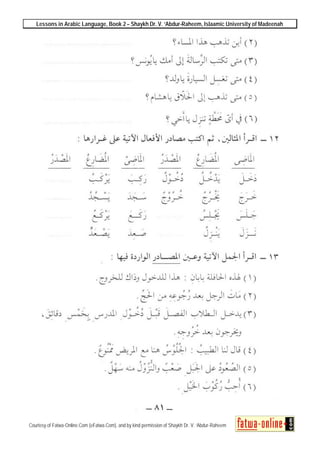 Lessons in Arabic Language, Book 2 – Shaykh Dr. V. 'Abdur-Raheem, Islaamic University of Madeenah
(٢) أين تذهب هذا المساء؟
(٣) متى تكتب الرِّسالَةَ إلى أمك يايُونس؟
(٤) متى تغسِل السيارةَ ياولد؟
(٥) متى تذهب إلى الحَلاَّق ياهشام؟
(٦) في أيّ مَحَطَّةٍ تنزِل ياَأخي؟
١٢ ــ اقـرأ المثالين، ثم اكتب مصادر الأفعال الآتية على غـرارها :
المَاضِى المُضَارِعُ المَصْدَرُ المَاضِىْ المُضَارِعُ المَصْدَرُ
دَخَـلَ يَدْخُـلُ دُخُـوْلٌ رَكِـبَ يَرْكَـبُ
خَـرجَ يَخْـرُجُ خُـرُوْجٌ سَـجَدَ يَسْـجُدُ
جَـلَـسَ يَجْـلِـسُ رَكَـعَ يَرْكَـعُ
نَـزَلَ يَنْـزِلُ صَـعِدَ يَصْـعَدُ
١٣ ــ اقـرأ الجمل الآتية وعـين المصــادر الواردة فيها :
(١) لهذه الحافلة بابان : هذا للدخول وذاك للخروج.
(٢) مَاتَ الرجل بعد رُجُوعِهِ من الحَجِّ.
(٣) يدخـل الـطلاب الفصـلَ قَبْـلَ دُخُـوْلِ المدرس بِخَمْسِ دقائقَ،
ويخرجون بعد خُرُوْجِهِ.
(٤) قال لنا الطبيبُ : الجُلُوْسُ هنا مع المريضِ مَمْنُوعٌ.
(٥) الصُّعُوْدُ على الجَبَلِ صَعْبٌ والنُّزُوْلُ منه سَهْلٌ.
(٦) أُحِبُّ رُكُوْبَ الخَيْلِ.
ــ ٨١ ــ
Courtesy of Fatwa-Online.Com (eFatwa.Com), and by kind permission of Shaykh Dr. V. 'Abdur-Raheem
fatwa-online.com